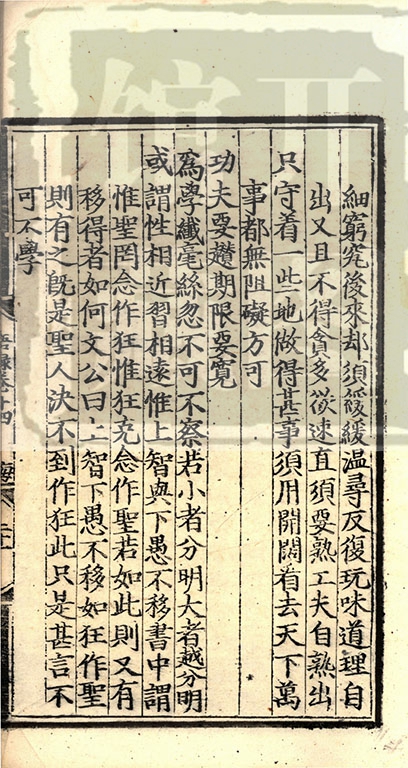 細窮究後來却須緩緩温尋反復玩味道理自
出又且不得貪多欲速直須要熟工夫自熟出
只守着一些地做得甚事須用開闊看去天下萬
事都無阻礙方可
功夫要趲期限要寬
為學纖毫絲忽不可不察若小者分明大者越分明
或謂性相近習相遠惟上智與下愚不移書中謂
惟聖罔念作狂惟狂克念作聖若如此則又有
移得者如何文公曰上智下愚不移如狂作聖
則有之既是聖人決不到作狂此只是甚言不
可不學
語錄卷十四